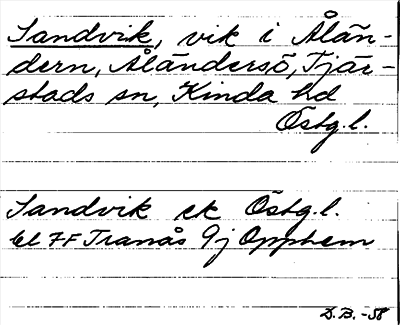 Sandvik, vik i Ålän-
dern, Åländersö, Tjär-
stads sn, Kinda hd
Östg.l.
Sandvik ek Östg.l.
bl 7F Tranås 9j Opphem
D.B. -58